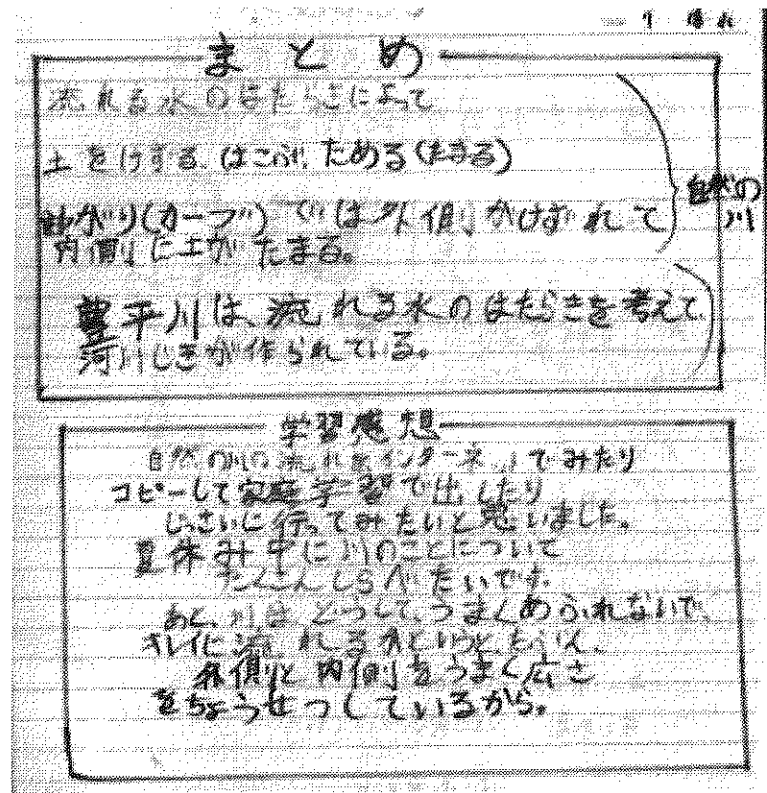 まとめ
流れる水のはたらきによって
土をけずる、はこぶ、ためる(たまる)
曲がり(カーブ)では外側がけずれて
内側に土がたまる。
自然の
川
豊平川は、流れる水のはたらきを考えて
河川じきが作られている。
学習感想
自然の川の流れをインターネットでみたり
コピーして家庭学習で出したり
じっさいに行ってみたいと思いました。
夏休み中に川のことについて
たくさんしらべたいです。
あと、川は、どうして、うまくあふれないで、
キレイに流れる
外側と内側をうまく広さ
をちょうせつしているから。